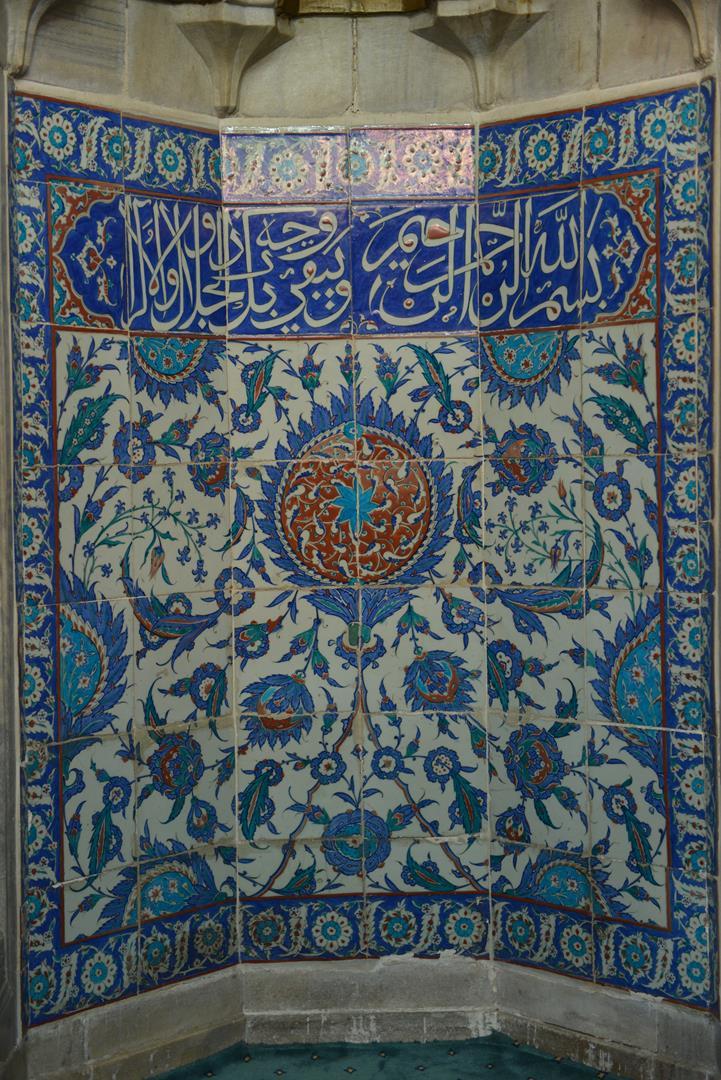 بسم الله الرحمن الرحيم ويبقى وجه ربك ذو الجلال والاكرام